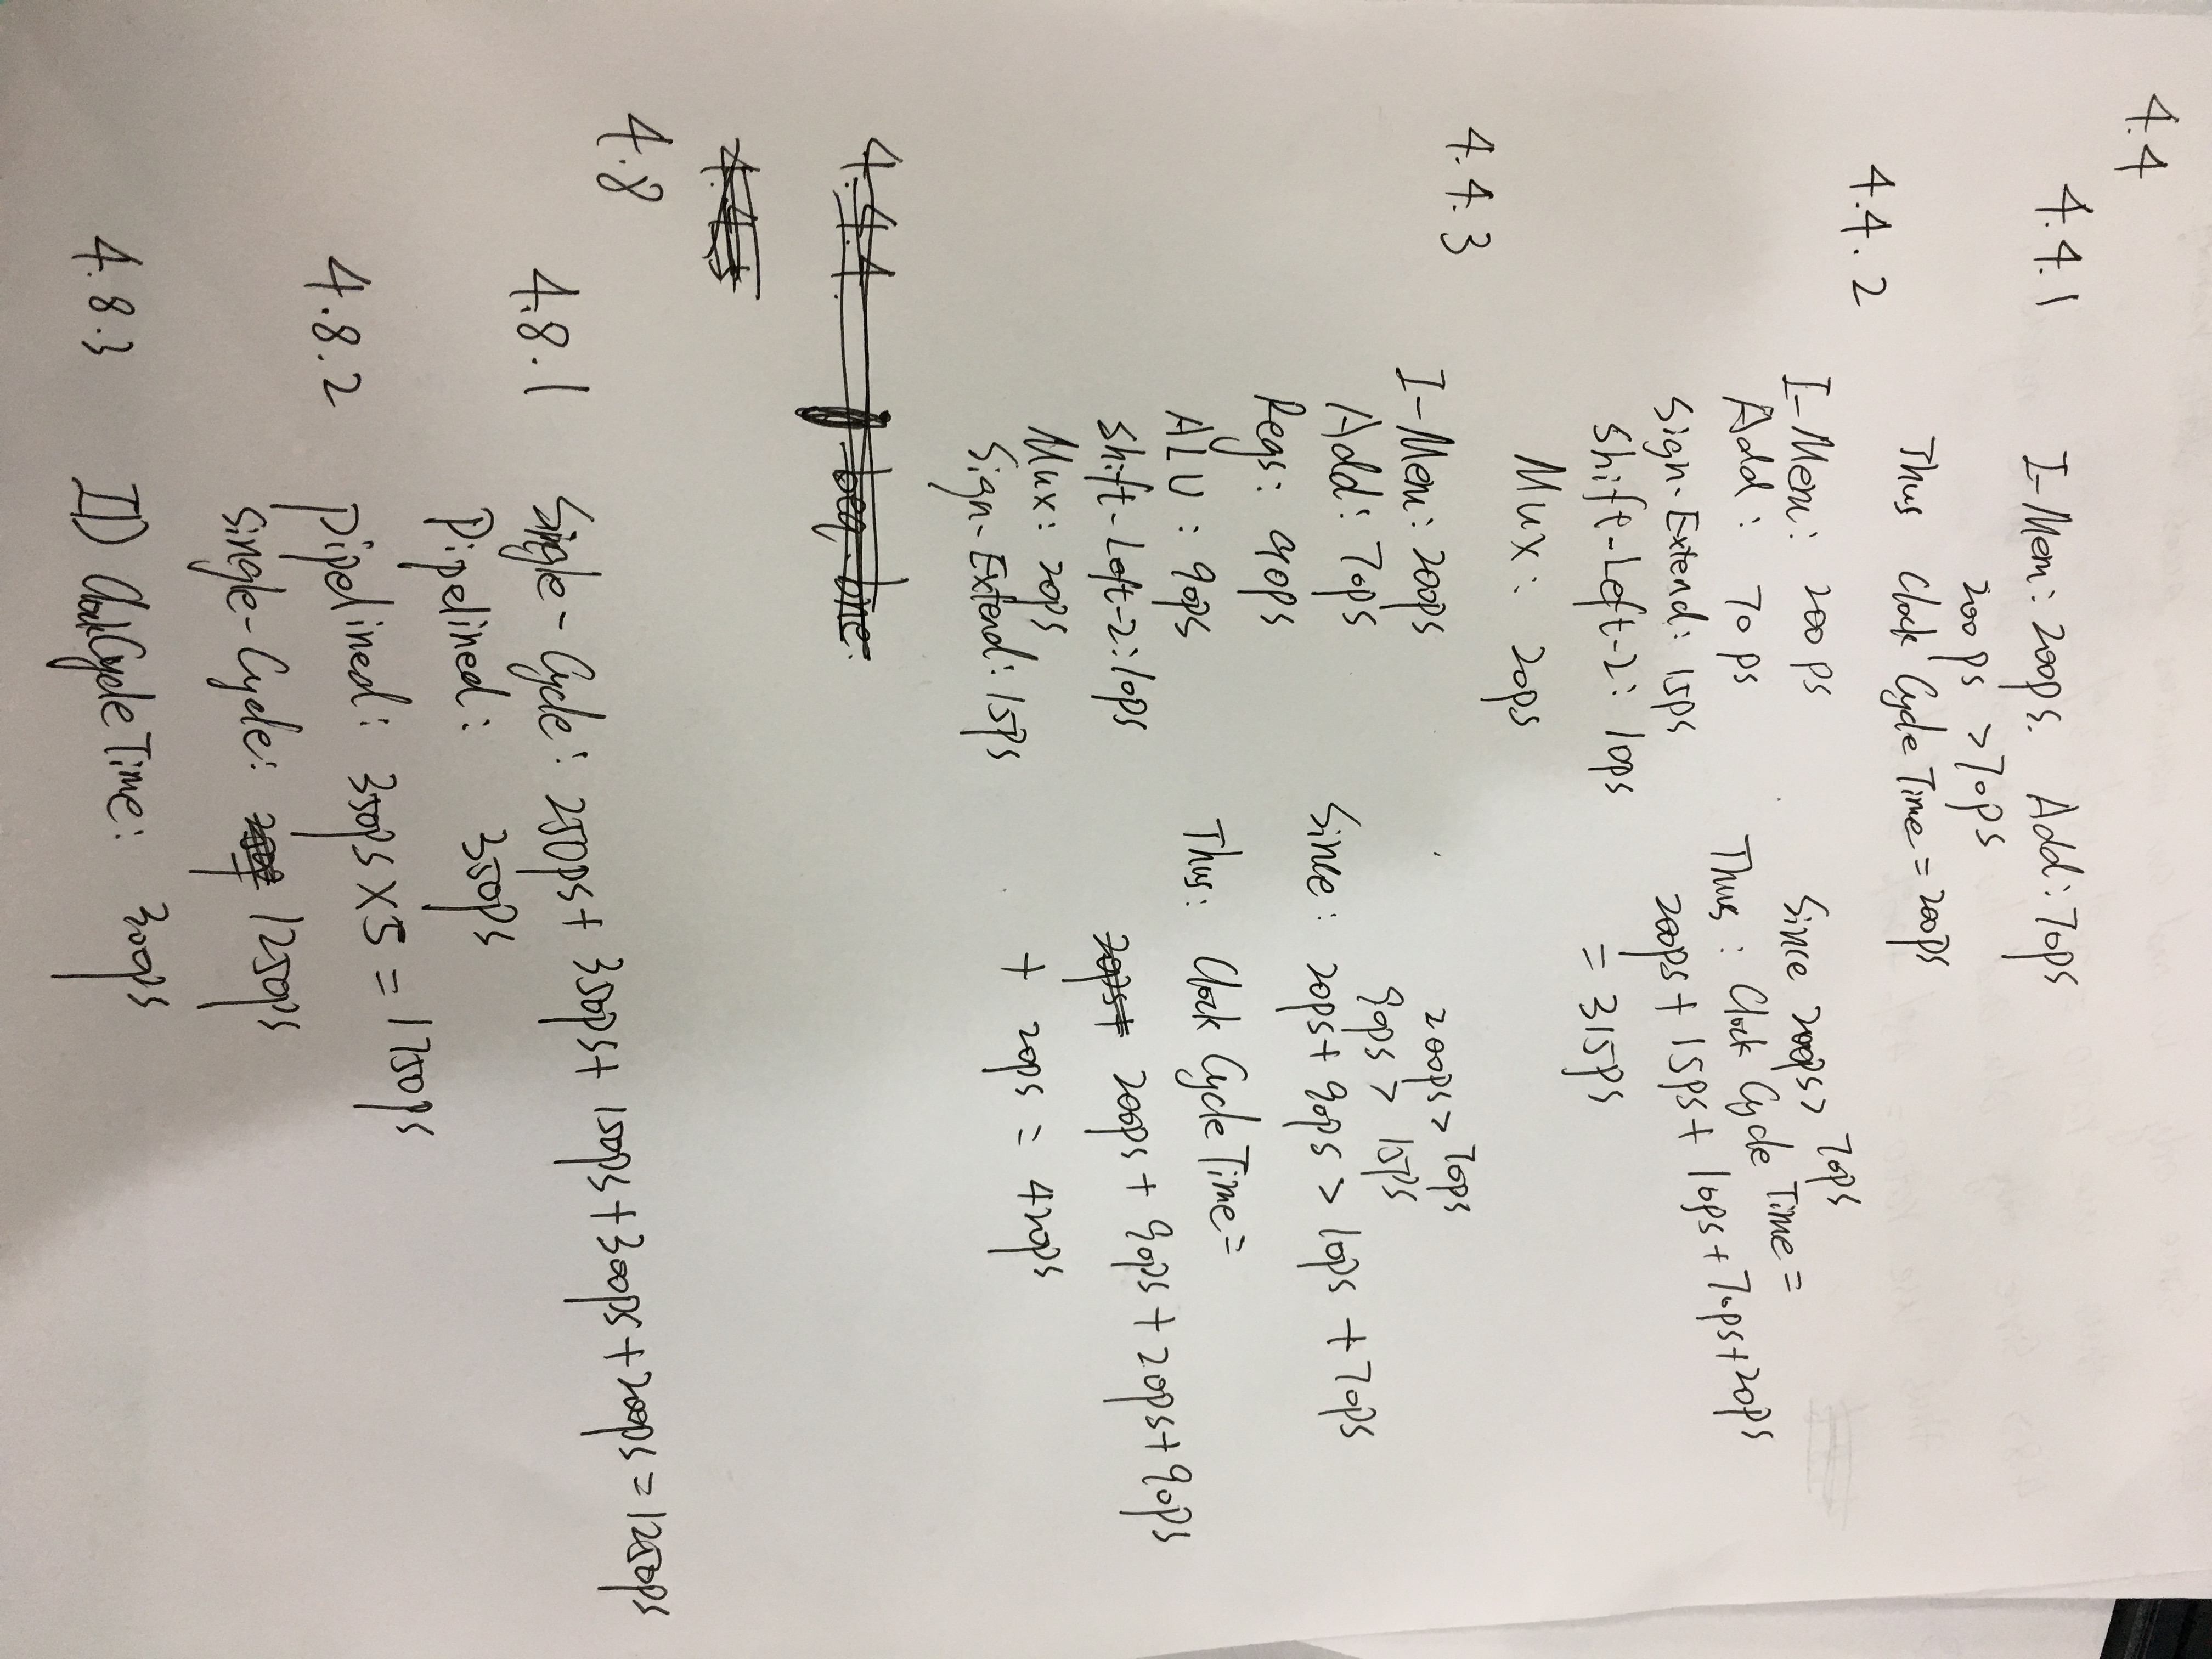 4.4
4.4.1 I-Mem: 200ps. Add: 70ps
200ps > 70ps
Thus Clock Cycle Time = 200ps
4.4.2
I-Mem: 200ps
Add: 70ps
Sign-Extend: 15ps
Shift-Left-2: 10ps
Mux: 20ps
Since 200ps > 70ps
Thus: Clock Cycle Time =
200ps + 15ps + 10ps + 70ps + 20ps
= 315ps
4.4.3
I-Mem: 200ps
Add: 70ps
Regs: 90ps
ALU: 90ps
Shift-Left-2: 10ps
Mux: 20ps
Sign-Extend: 15ps
200ps > 70ps
90ps > 15ps
Since: 20ps + 90ps > 10ps + 70ps
Thus: Clock Cycle Time =
200ps + 90ps + 20ps + 90ps
+ 20ps = 420ps
4.4.4
4.8
4.8.1 Single-Cycle: 250ps + 350ps + 150ps + 300ps + 200ps = 1250ps
Pipelined: 350ps
4.8.2 Pipelined: 350ps × 5 = 1750ps
Single-Cycle: 1250ps
4.8.3 ID Clock Cycle Time: 300ps